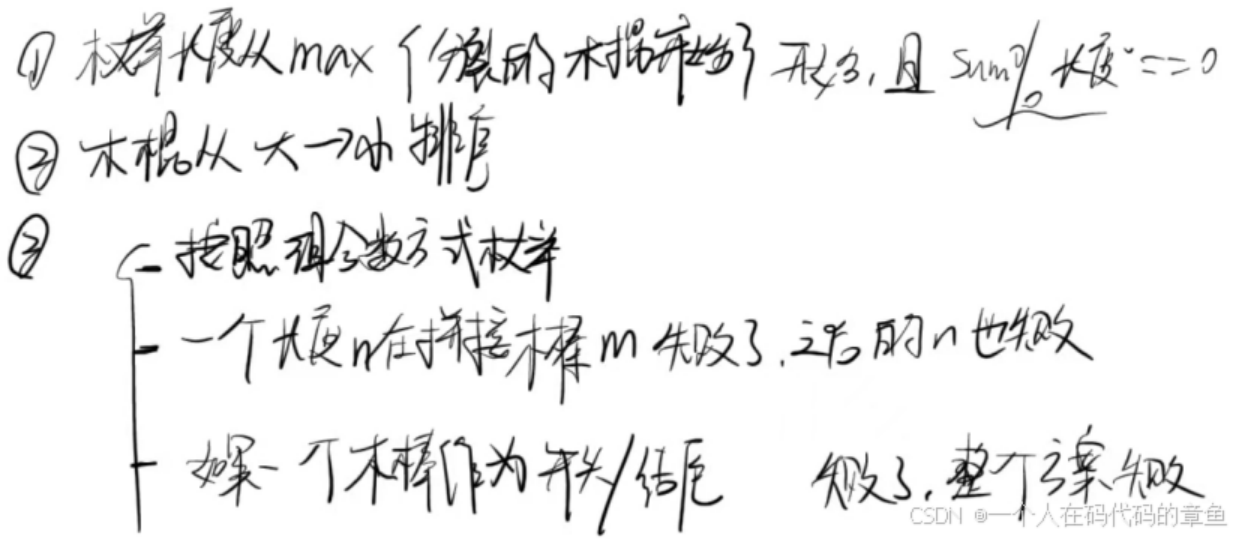 ① 枚举长度从 max {分裂的木棍开始} 开始, 且 sum % 长度 == 0
② 木棍从 大→小 排序
③ - 按照组合数方式枚举
- 一个长度n在拼接木棒 m 失败了,之后的n也失败
- 如果一个木棒作为开头/结尾 失败了,整个方案失败
CSDN @一个人在码代码的章鱼